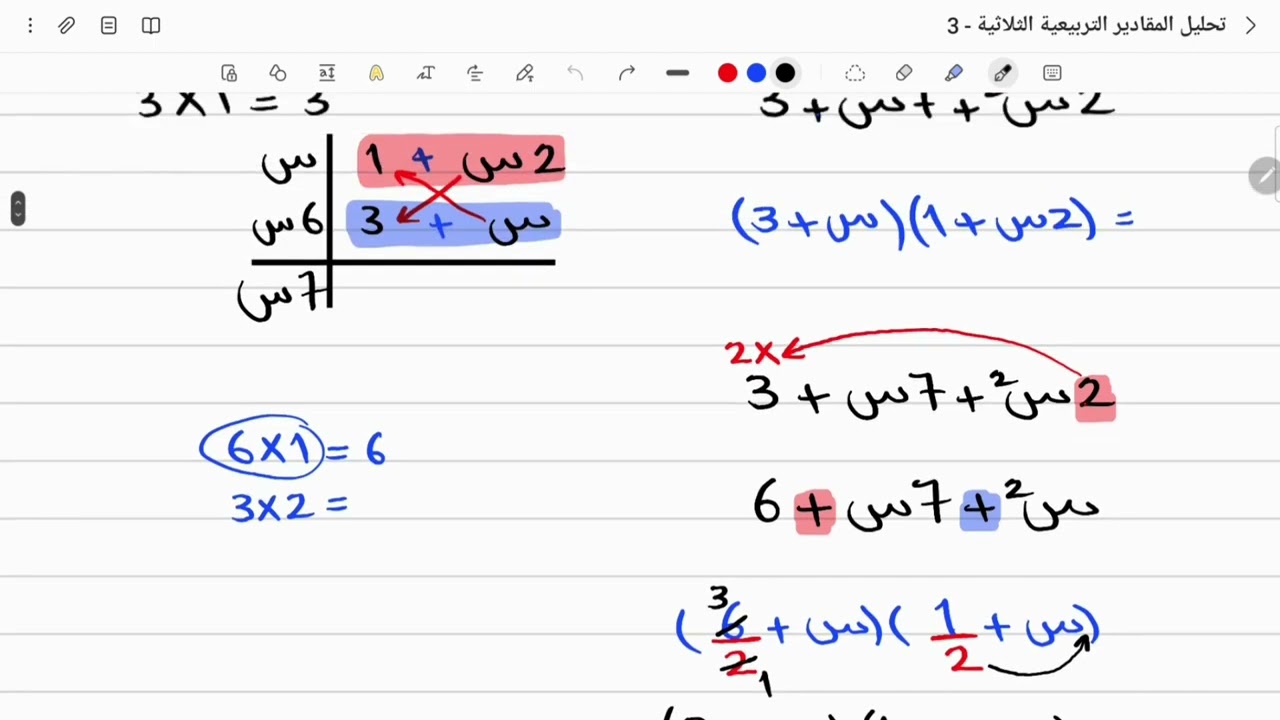 تحليل المقادير التربيعية الثلاثية - 3
2س² + 7س + 3
= (2س + 1)(س + 3)
×2
2س² + 7س + 3
س² + 7س + 6
(س + 1/2)(س + 6/2)
3
1
3 × 1 = 3
2س + 1 | س
س + 3 | 6س
7س
6 × 1 = 6
3 × 2 =